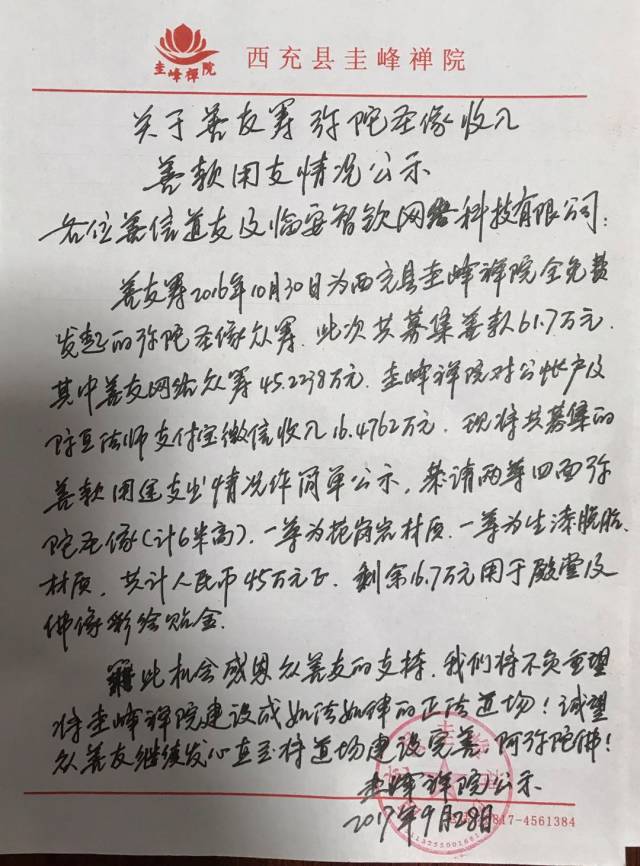 圭峰禅院
西充县圭峰禅院
关于善友筹弥陀圣像收入
善款用支情况公示
各位善信道友及临安智钦网络科技有限公司:
善友筹2016年10月30日为西充县圭峰禅院全免费
发起的弥陀圣像众筹.此次共募集善款61.7万元.
其中善友网络众筹45.2238万元.圭峰禅院对公帐户及
法师支付宝微信收入16.4762万元.现将共募集的
善款用途支出情况作简单公示,恭请两尊四面弥
陀圣像(计6米高),一尊为花岗岩材质.一尊为生漆脱胎
材质,共计人民币45万元正.剩余16.7万元用于殿堂及
佛像彩绘贴金.
此机会感恩众善友的支持.我们将不负重望
将圭峰禅院建设成如法如律的正法道场!诚望
众善友继续发心直至将道场建设完善.阿弥陀佛!
圭峰禅院公示
2017年9月28日
817-4561384